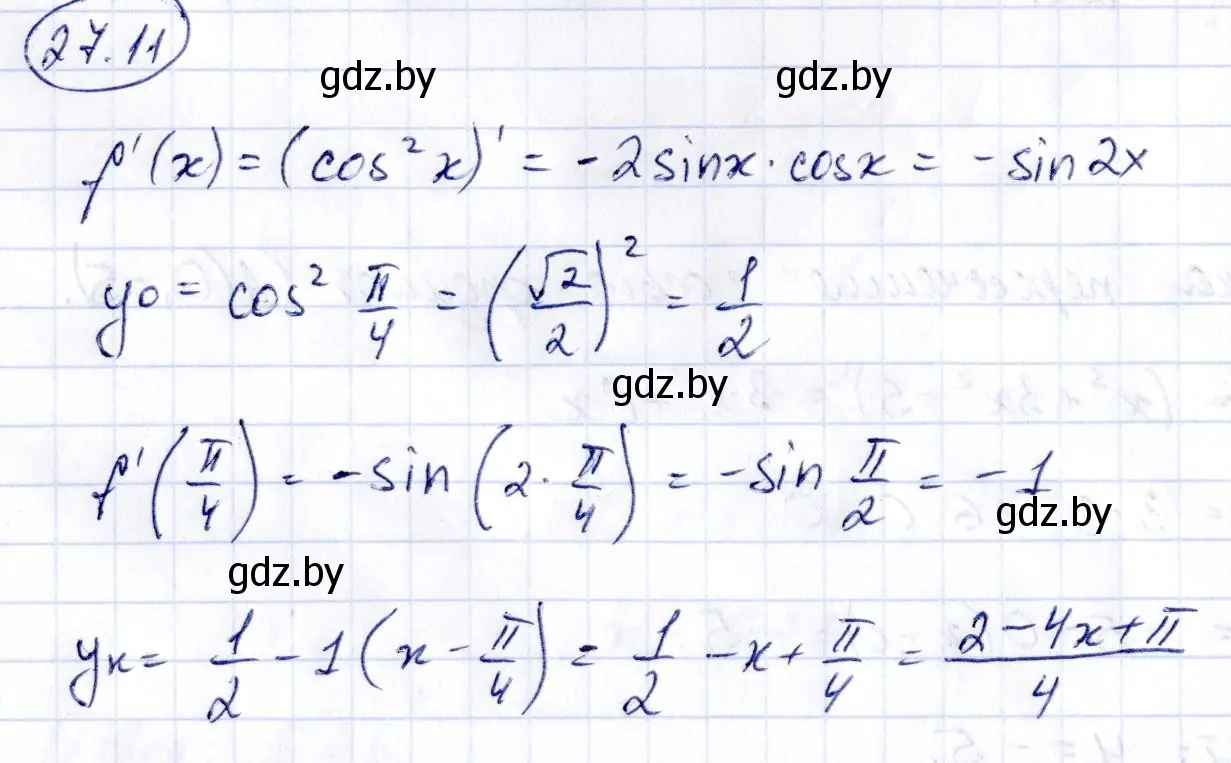 27.11
gdz.by gdz.by
f'(x) = (cos²x)' = -2sinx·cosx = -sin2x
y0 = cos² π/4 = (√2/2)² = 1/2
gdz.by
f'(π/4) = -sin(2·π/4) = -sin π/2 = -1
gdz.by
gdz.by
yк = 1/2 - 1(x - π/4) = 1/2 - x + π/4 = (2-4x+π)/4